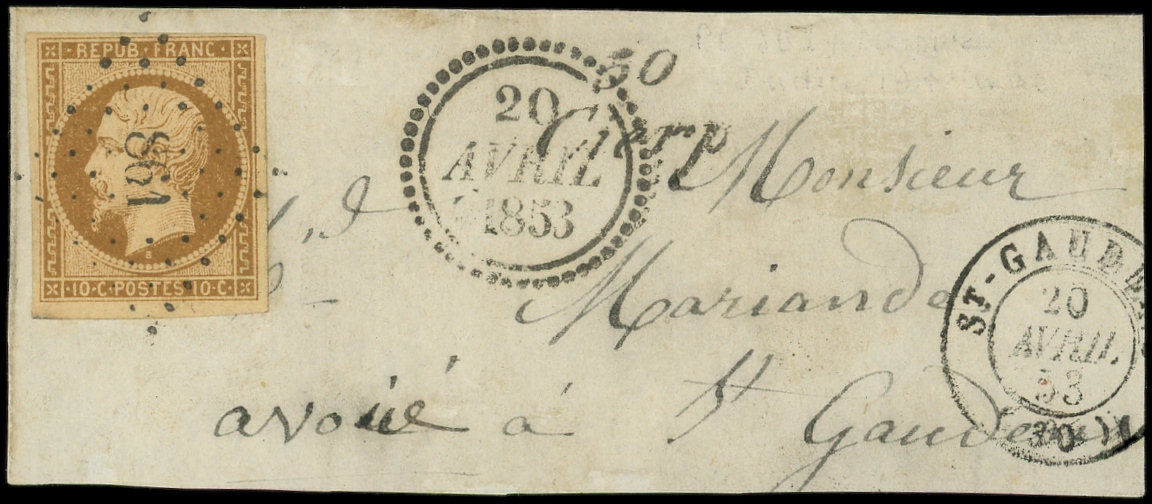 REPUB. FRANC.
861
10·C·POSTES·10·C·
B
20
AVRIL
1853
30
Cierp
Monsieur
Mariande
avoué à St Gaudens
ST-GAUDENS
20
AVRIL
53
(30)